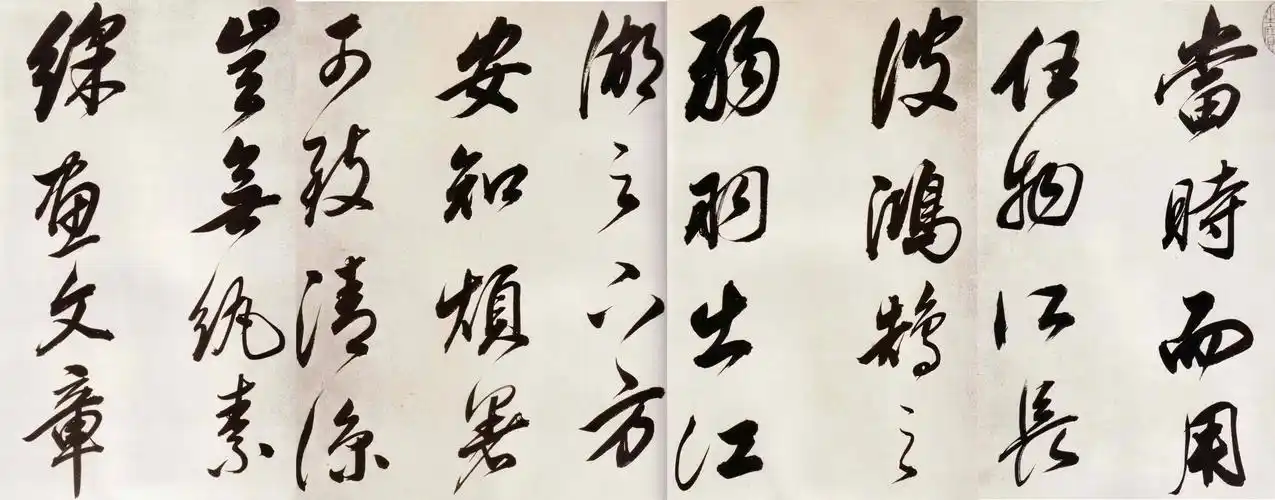 當時而用
任物所長
彼鴻鵠之
弱羽出江
湖之下方
安知煩暑
可致清涼
豈無紈素
綵畫文章